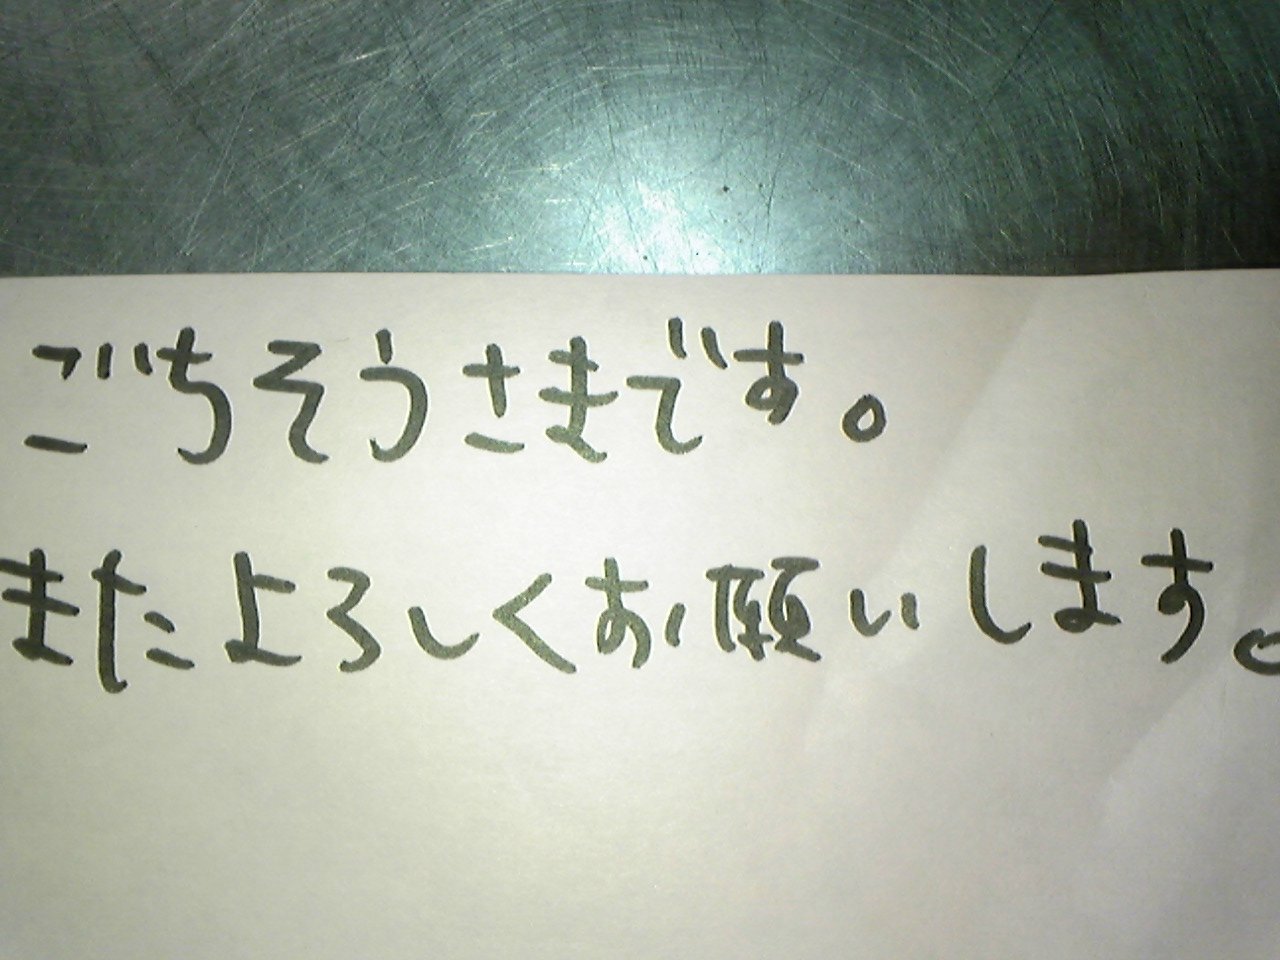 ごちそうさまです。
またよろしくお願いします。